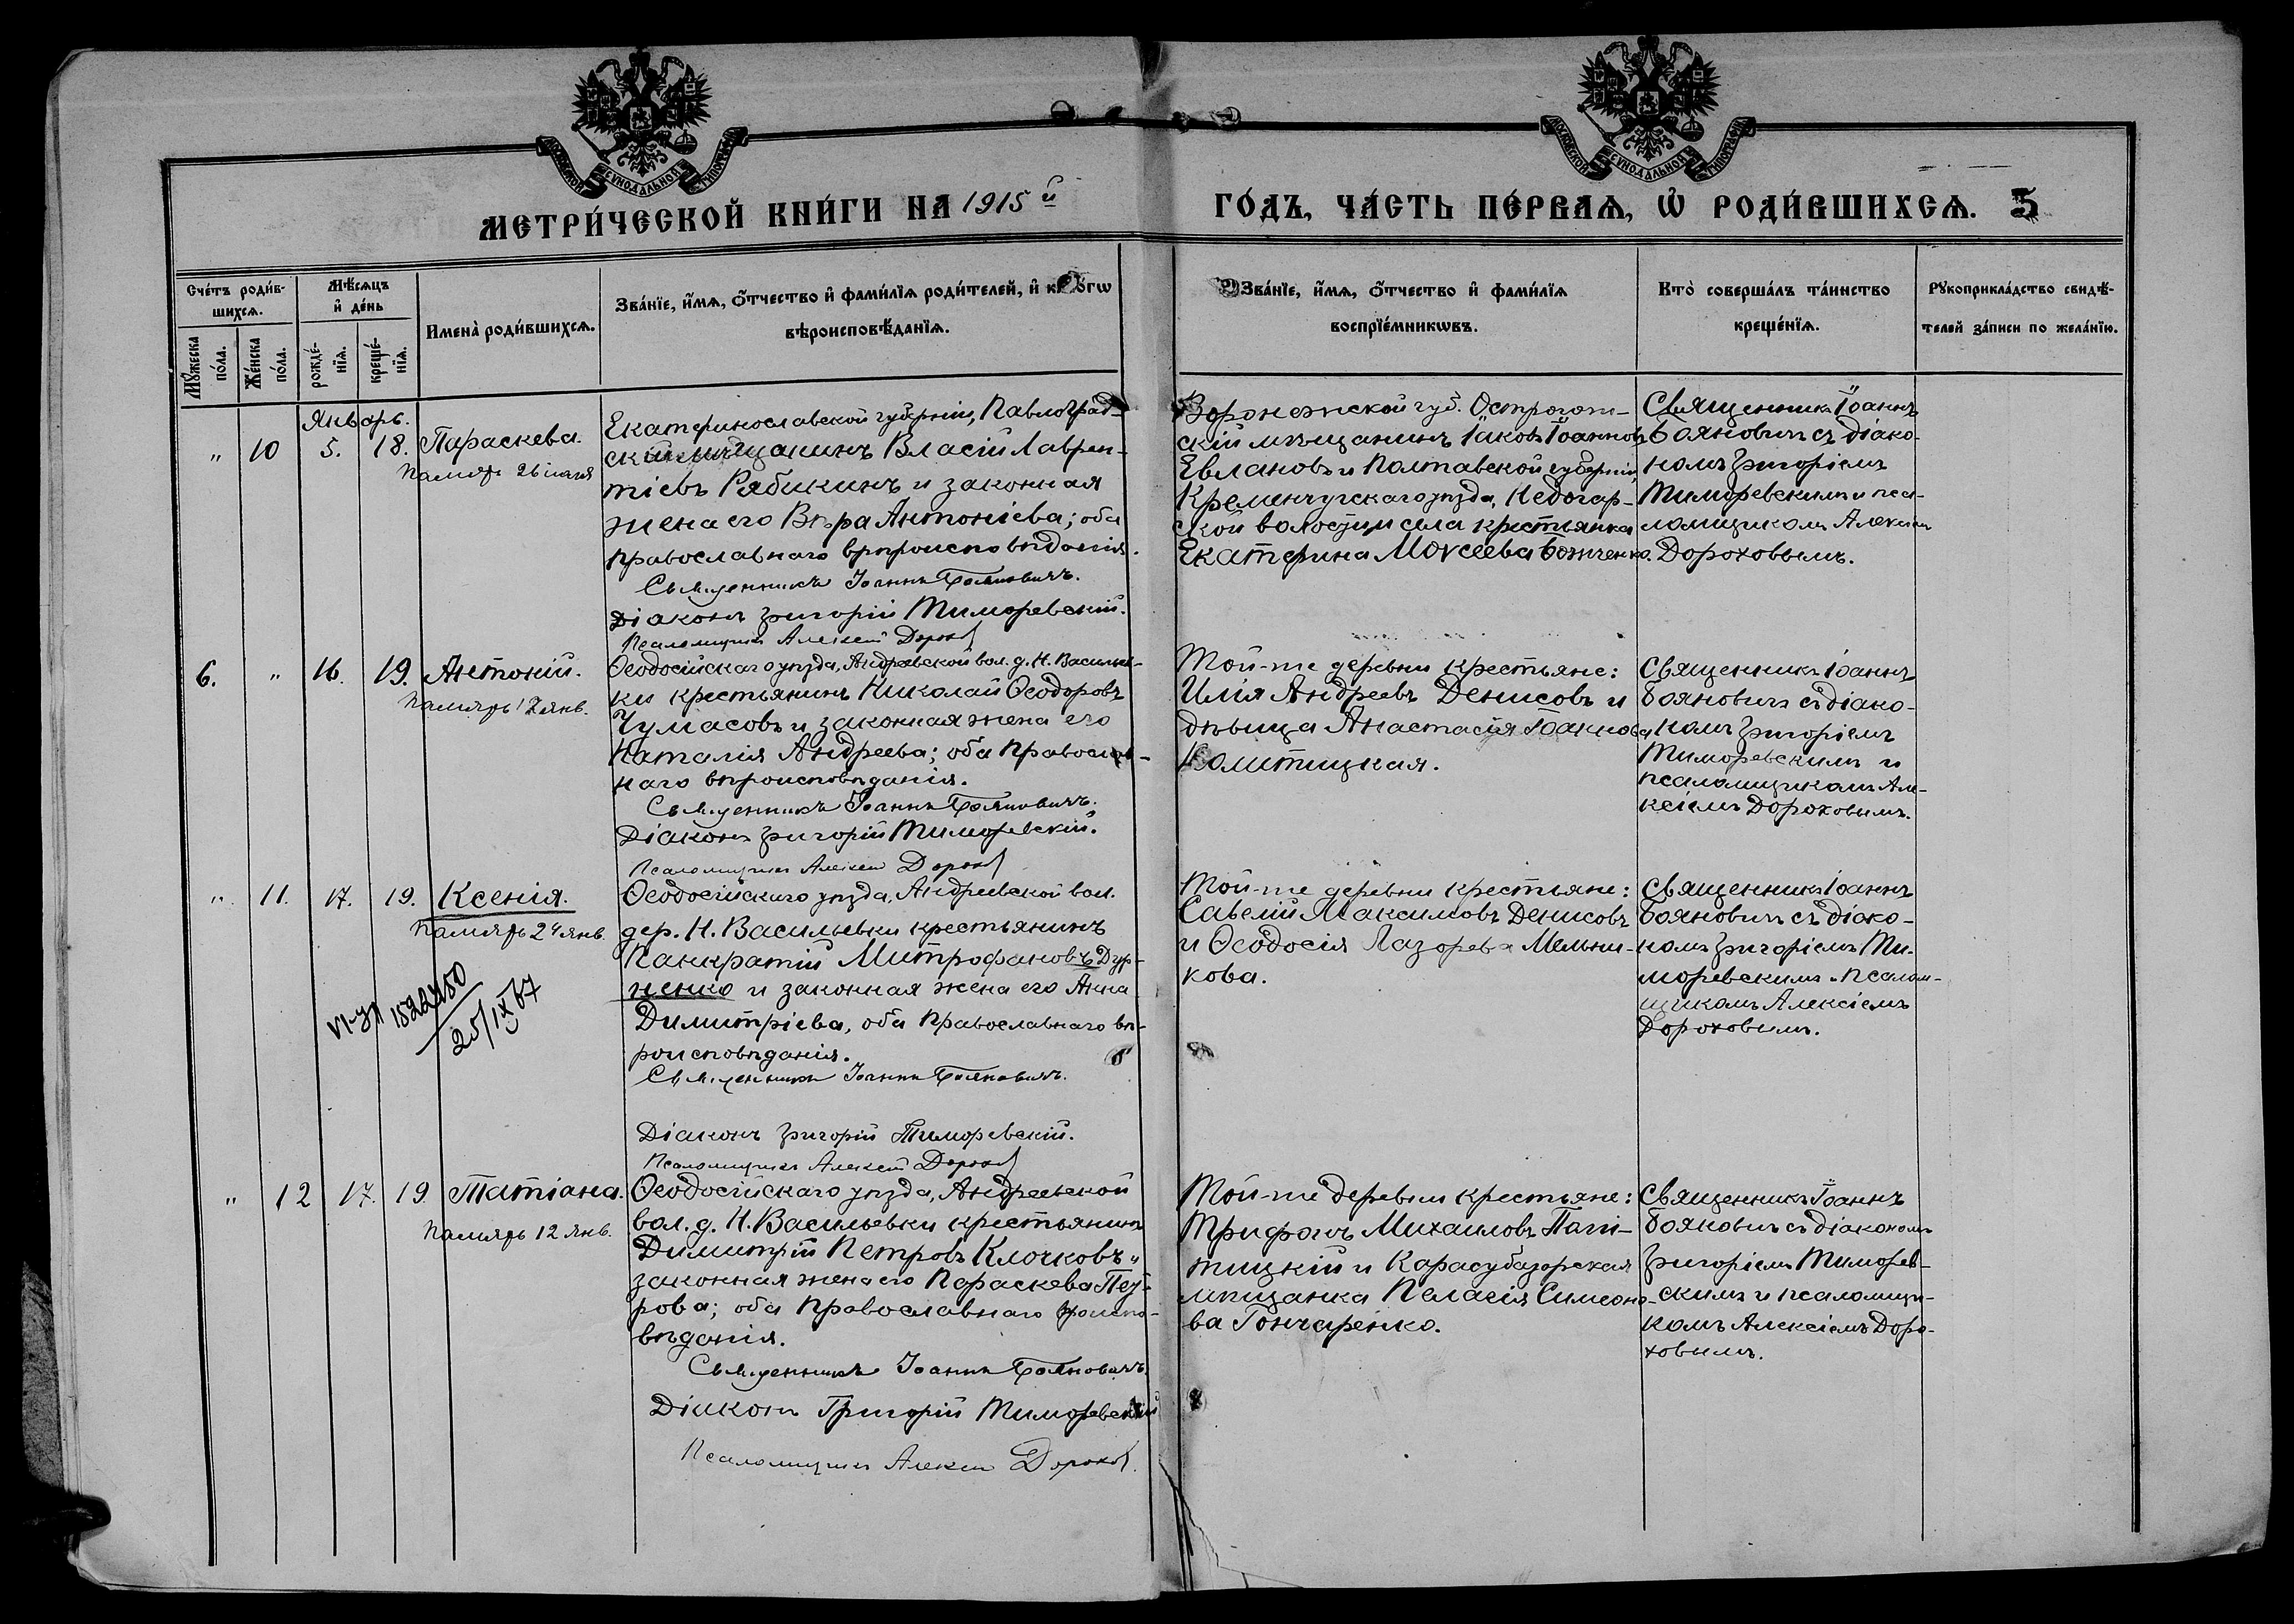 МОСКОВСКОЙ СѴНОДАЛЬНОЙ ТИПОГРАФІИ
МОСКОВСКОЙ СѴНОДАЛЬНОЙ ТИПОГРАФІИ
МЕТРИ́ЧЕСКОЙ КНИ́ГИ НА 1915 й
ГО́ДЪ, ЧА́СТЬ ПЕ́РВАѦ, Ѿ РОДИ́ВШИХСѦ. 5
Сче́тъ роди́в-
шихсѧ.
Мꙋ́жеска по́ла.
Же́нска по́ла.
Мѣ́сѧцъ и҆ де́нь
рожде́-нїѧ.
креще́-нїѧ.
Имена̀ роди́вшихсѧ.
Зва́нїе, и҆́мѧ, ѻ҆́тчество и҆ фами́лїѧ роди́телей, и҆ ко́гѡ
вѣроисповѣ́данїѧ.
Зва́нїе, и҆́мѧ, ѻ҆́тчество и҆ фами́лїѧ
воспрїе́мникѡвъ.
Кто̀ соверша́лъ та́инство
креще́нїѧ.
Рꙋкоприкла́дство свидѣ́-
телей за́писи по жела́нїю.
Январь.
" 10 5. 18. Параскева.
Память 26 іюля
Екатеринославской губерніи, Павлоград-
скій мѣщанинъ Власій Лаврен-
тіевъ Рябикинъ и законная
жена его Вѣра Антоніева; оба
православнаго вѣроисповѣданія.
Священникъ Іоаннъ Бояновичъ.
Діаконъ Григорій Тиморевскій.
Псаломщикъ Алексей Дорохов
Воронежской губ. Острогож-
скій мѣщанинъ Іаковъ Іоанновъ
Евлановъ и Полтавской губерніи,
Кременчугскаго уѣзда, Недогар-
ской волости и села крестьянка
Екатерина Моисеева Божченко.
Священникъ Іоаннъ
Бояновичъ съ діако-
номъ Григоріемъ
Тиморевскимъ и пса-
ломщикомъ Алексіемъ
Дороховымъ.
6. " 16. 19. Антоній.
Память 17 янв.
Ѳеодосійскаго уѣзда, Андреевской вол. д. Н. Васильев-
ки крестьянинъ Николай Ѳеодоровъ
Чумасовъ и законная жена его
Наталія Андреева; оба православ-
наго вѣроисповѣданія.
Священникъ Іоаннъ Бояновичъ.
Діаконъ Григорій Тиморевскій.
Псаломщикъ Алексей Дорохов
Той-же деревни крестьяне:
Илія Андреевъ Денисовъ и
дѣвица Анастасія Іоаннова
Комитицкая.
Священникъ Іоаннъ
Бояновичъ съ діако-
номъ Григоріемъ
Тиморевскимъ и
псаломщикомъ Але-
ксіемъ Дороховымъ.
" 11. 17. 19. Ксенія.
Память 24 янв.
25/IX 67
Ѳеодосійскаго уѣзда, Андреевской вол.
дер. Н. Васильевки крестьянинъ
Панкратій Митрофановъ Дур-
ненко и законная жена его Анна
Димитріева, оба православнаго вѣ-
роисповѣданія.
Священникъ Іоаннъ Бояновичъ.
Діаконъ Григорій Тиморевскій.
Псаломщикъ Алексей Дорохов
Той-же деревни крестьяне:
Савелій Максимовъ Денисовъ
и Ѳеодосія Лазорева Мельни-
кова.
Священникъ Іоаннъ
Бояновичъ съ діако-
номъ Григоріемъ Ти-
моревскимъ и псалом-
щикомъ Алексіемъ
Дороховымъ.
" 12 17. 19. Татіана.
Память 12 янв.
Ѳеодосійскаго уѣзда, Андреевской
вол. д. Н. Васильевки крестьянинъ
Димитрій Петровъ Клочковъ и
законная жена его Параскева Пет-
рова; оба православнаго вроиспо-
вѣданія.
Священникъ Іоаннъ Бояновичъ.
Діаконъ Григорій Тиморевскій
Псаломщикъ Алексей Дорохов.
Той-же деревни крестьяне:
Трифонъ Михаиловъ
и Карасубазарская
мѣщанка Пелагія Симеоно-
ва Гончаренко.
Священникъ Іоаннъ
Бояновичъ съ діакономъ
Григоріемъ Тиморев-
скимъ и псаломщи-
комъ Алексіемъ Доро-
ховымъ.